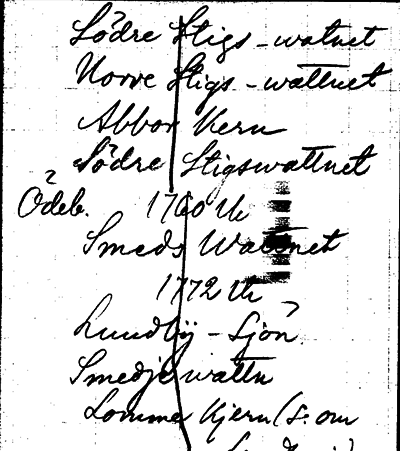 Södre Stigs-watnet
Norre Stigs-wattnet
Abbor Kern
Södre Stigswattnet
Ödeb. 1760 Ur
Smeds Wattnet
1772 Ur
Lundby-Sjön
Smedje wattn
Lomme Kjern (S. om